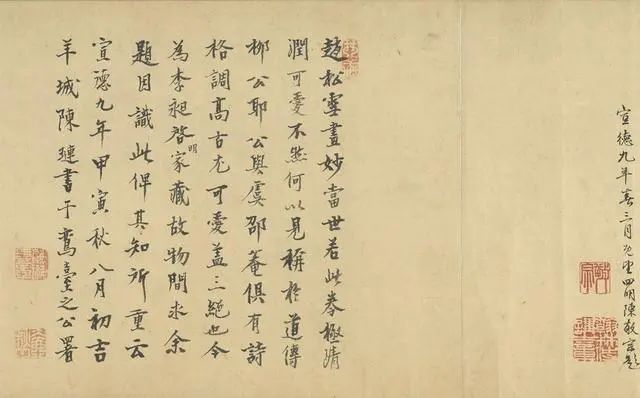 宣德九年春三月既望四明陳敬宗題
趙松雪畫妙當世若此卷極清
潤可愛不然何以見稱於道傳
柳公耶公與虞邵菴俱有詩
格調高古尤可愛蓋三絕也今
為李昶啓明家藏故物間求余
題因識此俾其知所重云
宣德九年甲寅秋八月初吉
羊城陳璉書于鸞臺之公署